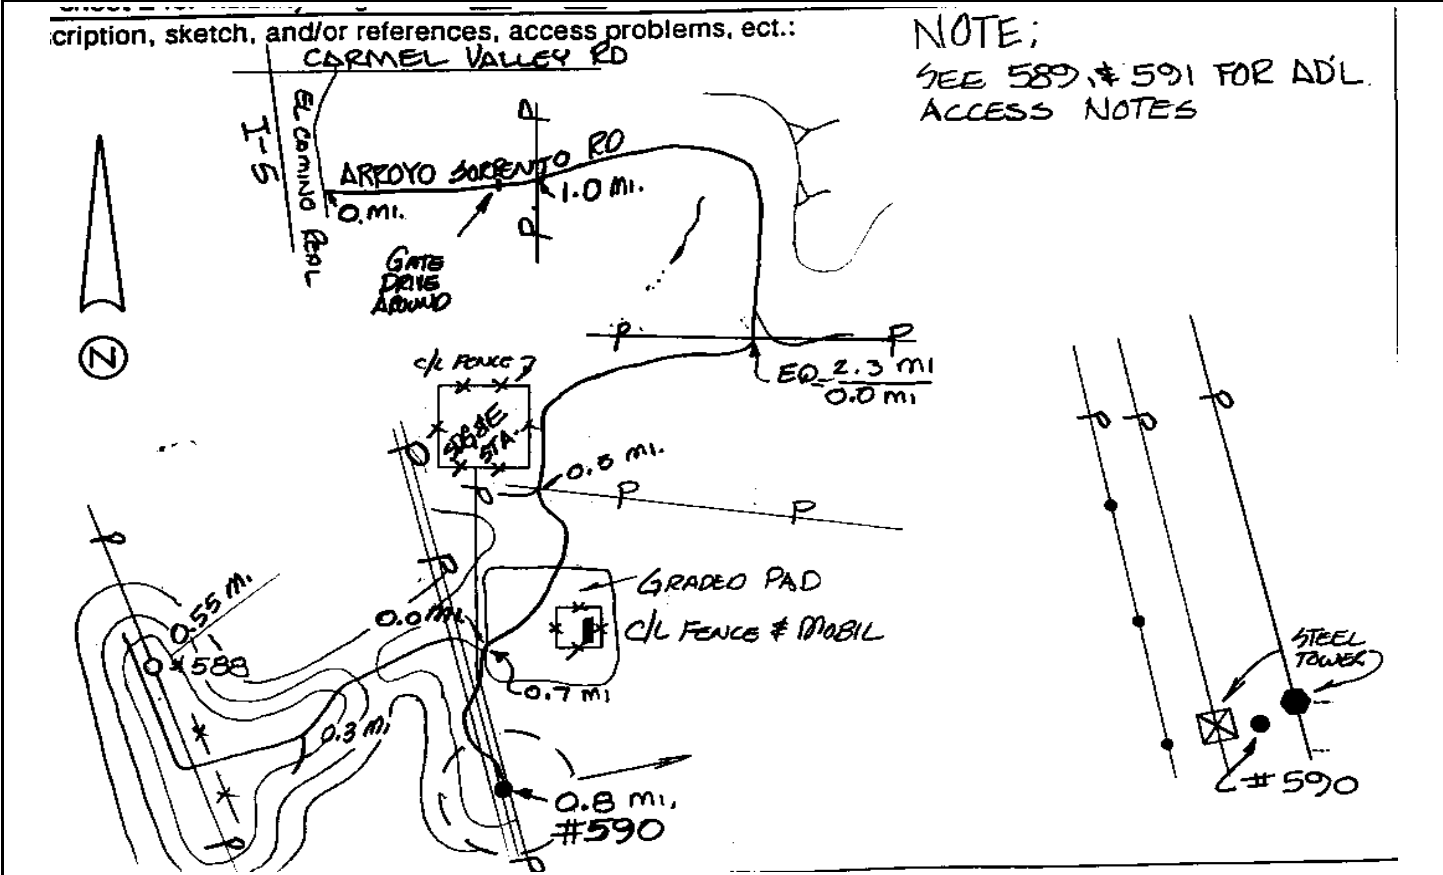 cription, sketch, and/or references, access problems, ect.:
NOTE;
SEE 589, & 591 FOR AD'L.
ACCESS NOTES
CARMEL VALLEY RD
I-5
EL CAMINO REAL
ARROYO SORRENTO RD
0. MI.
1.0 MI.
P
P
GATE
DRIVE
AROUND
N
P
P
EQ= 2.3 MI
0.0 MI
C/L FENCE
SDG&E
STA.
0.5 MI.
P
P
P
P
P
P
GRADED PAD
C/L FENCE & MOBIL
0.0 MI.
0.55 MI.
588
0.7 MI
0.3 MI
0.8 MI.
#590
P
P
P
P
P
STEEL
TOWER
#590